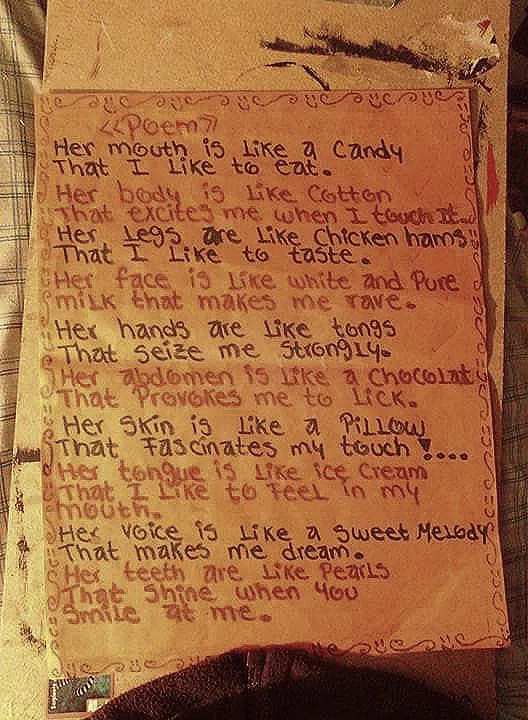 <<Poem>>
Her mouth is Like a Candy
That I Like to eat.
Her body is Like Cotton
That excites me when I touch It..
Her Legs are Like Chicken hams
That I Like to taste.
Her face is Like white and Pure
milk that makes me rave.
Her hands are Like tongs
That seize me strongly.
Her abdomen is Like a Chocolat
That Provokes me to Lick.
Her Skin is Like a PiLLOW
That Fascinates my touch !....
Her tongue is Like ice Cream
That I Like to FeeL in my
mouth.
Her Voice is Like a Sweet MeLody
That makes me dream.
Her teeth are Like Pearls
That Shine when you
Smile at me.